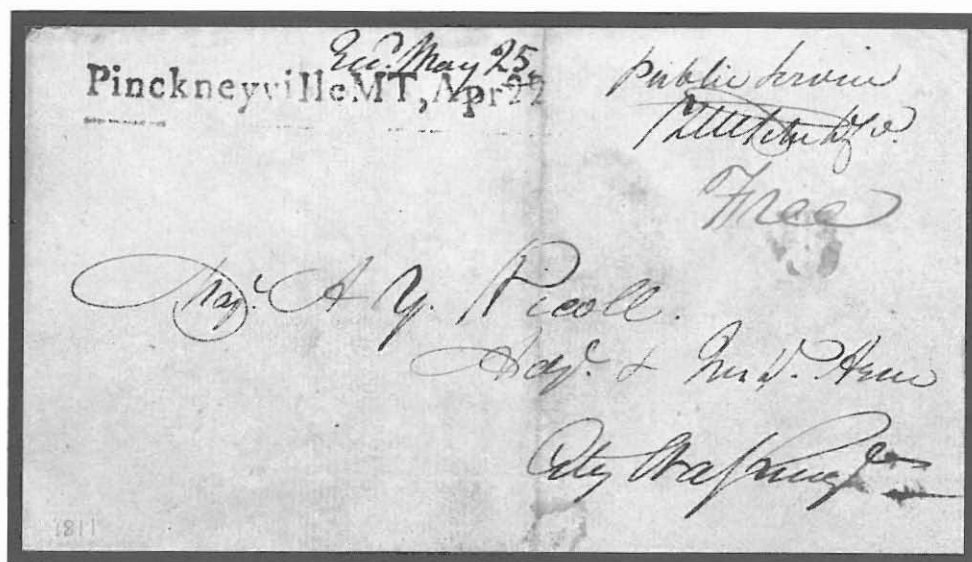 Recd. May 25
Pinckneyville MT, Apr 22
Public Service
Free
Majr. A Y. Nicoll.
Adjt. &
City Washington
1811